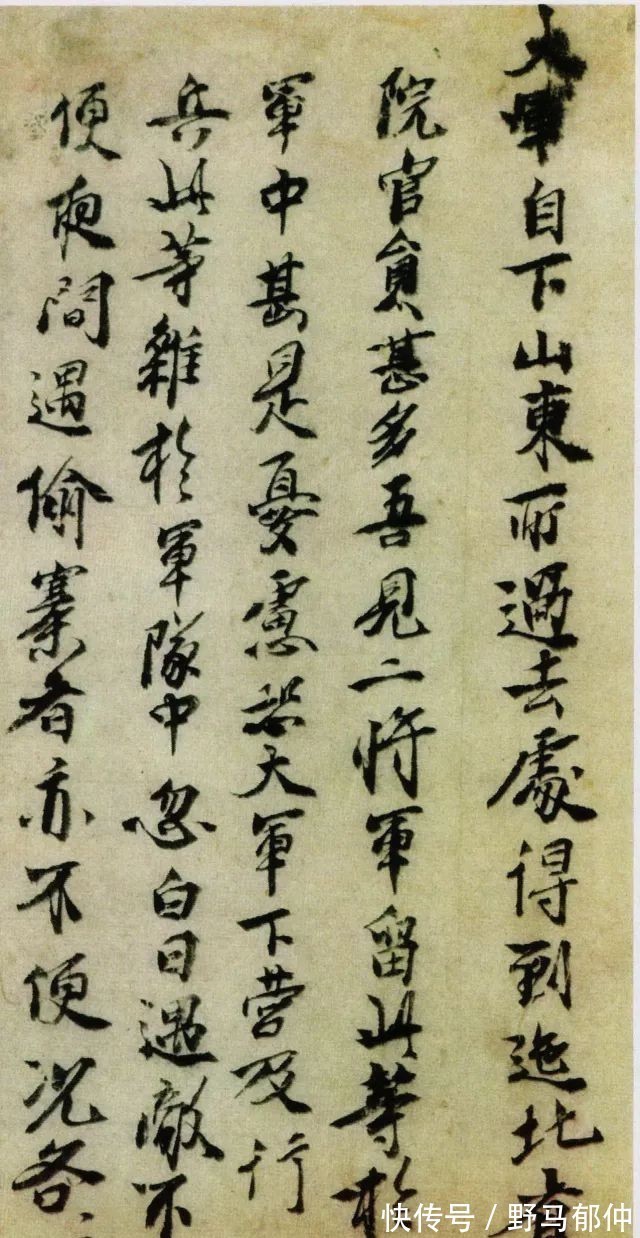 大軍自下山東所過去處得到迤北省
院官員甚多吾見二將軍留此等於
軍中甚是憂慮恐大軍下營及行
兵此等雜於軍隊中忽白日遇敵不
便夜間遇偷寨者亦不便況各
快传号 / 野马郁仲